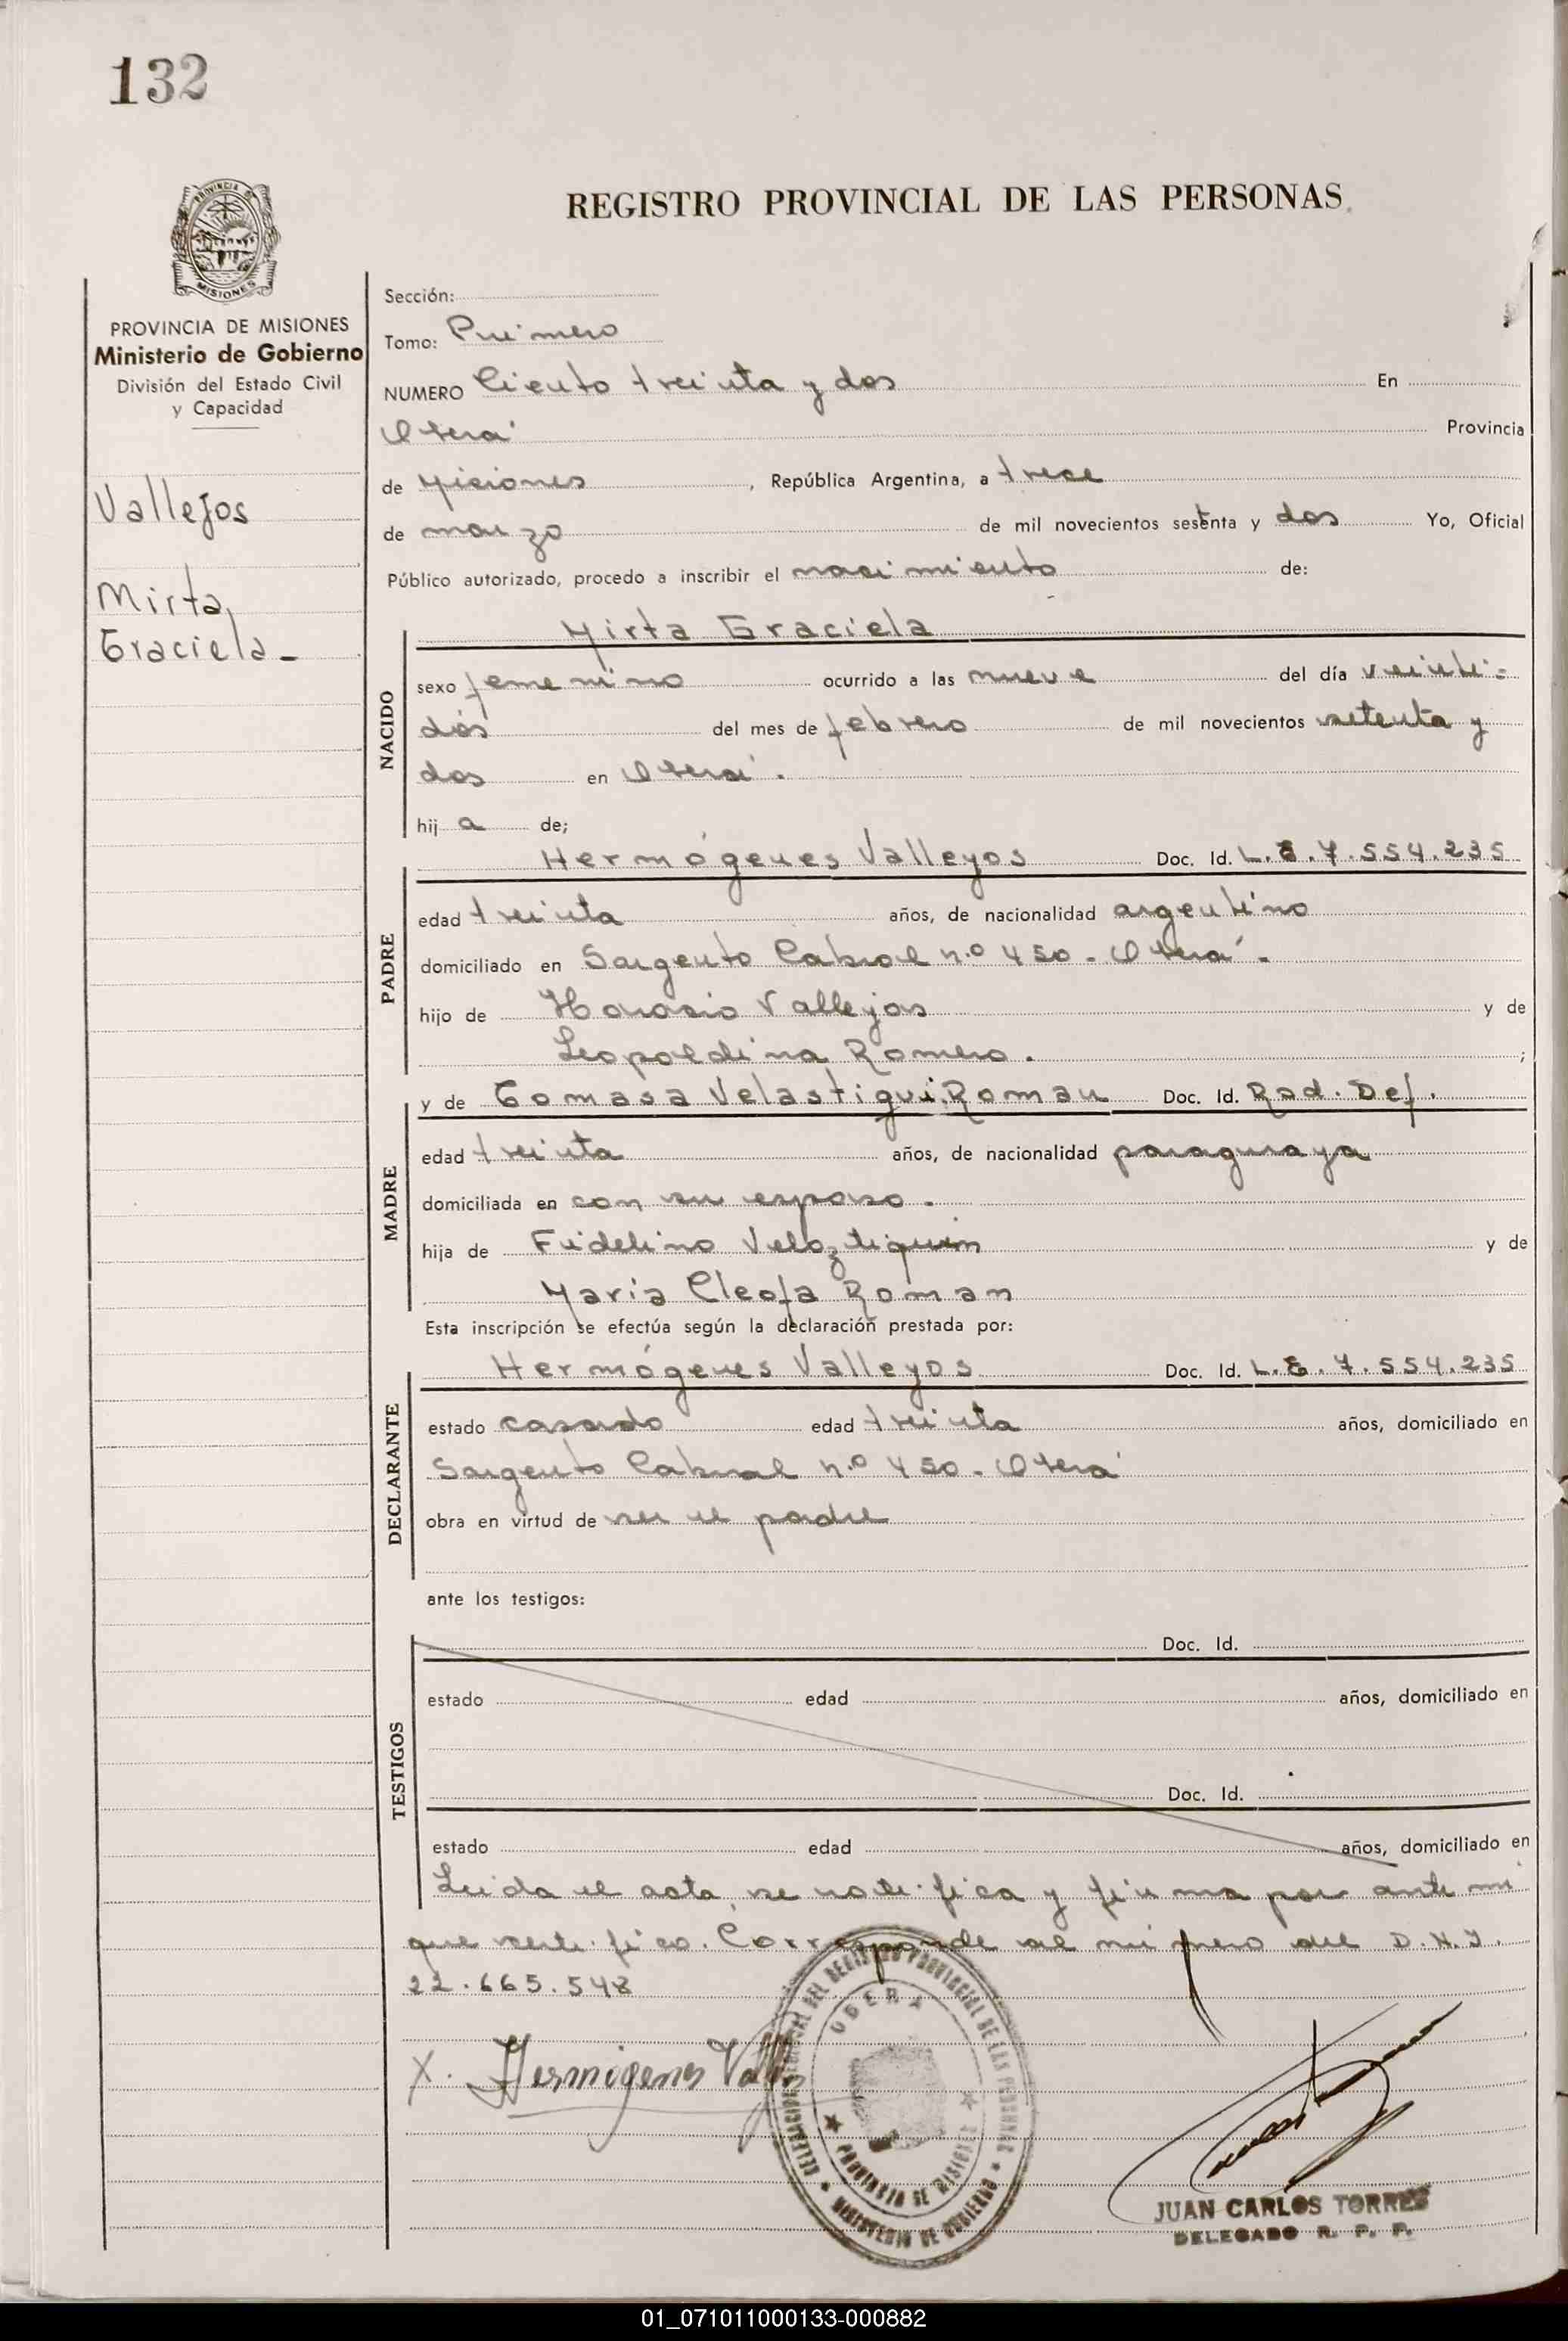 132
PROVINCIA DE
MISIONES
REGISTRO PROVINCIAL DE LAS PERSONAS
PROVINCIA DE MISIONES
Ministerio de Gobierno
División del Estado Civil
y Capacidad
Vallejos
Mirta
Graciela -
Sección:
Tomo: Primero
NUMERO Ciento treinta y dos En
Oberá Provincia
de Misiones, República Argentina, a trece
de marzo de mil novecientos setenta y dos Yo, Oficial
Público autorizado, procedo a inscribir el nacimiento de:
NACIDO
Mirta Graciela
sexo femenino ocurrido a las nueve del día veinti-
dós del mes de febrero de mil novecientos setenta y
dos en Oberá.
hija de;
PADRE
Hermógenes Valleyos Doc. Id. L.E. 7.554.235
edad treinta años, de nacionalidad argentino
domiciliado en Sargento Cabral n.º 450 - Oberá -
hijo de Horacio Vallejos y de
Leopoldina Romero. ;
MADRE
y de Tomasa Velastiqui Roman Doc. Id. Rad. Def.
edad treinta años, de nacionalidad paraguaya
domiciliada en con su esposo -
hija de Fidelino Veloztiquin y de
Maria Cleofa Roman
Esta inscripción se efectúa según la declaración prestada por:
DECLARANTE
Hermógenes Valleyos Doc. Id. L.E. 7.554.235
estado casado edad treinta años, domiciliado en
Sargento Cabral n.º 450 - Oberá
obra en virtud de ser el padre
ante los testigos:
TESTIGOS
Doc. Id.
estado edad años, domiciliado en
Doc. Id.
estado edad años, domiciliado en
Leida el acta, se notifica y firma por ante mi
que certifico. Corresponde al número del D.N.I.
22.665.548
X. Hermógenes
DEL REGISTRO PROVINCIAL DE LAS PERSONAS
OBERA
PROVINCIA DE MISIONES
MINISTERIO DE GOBIERNO
JUAN CARLOS TORRES
DELEGADO R. P. P.
01_071011000133-000882